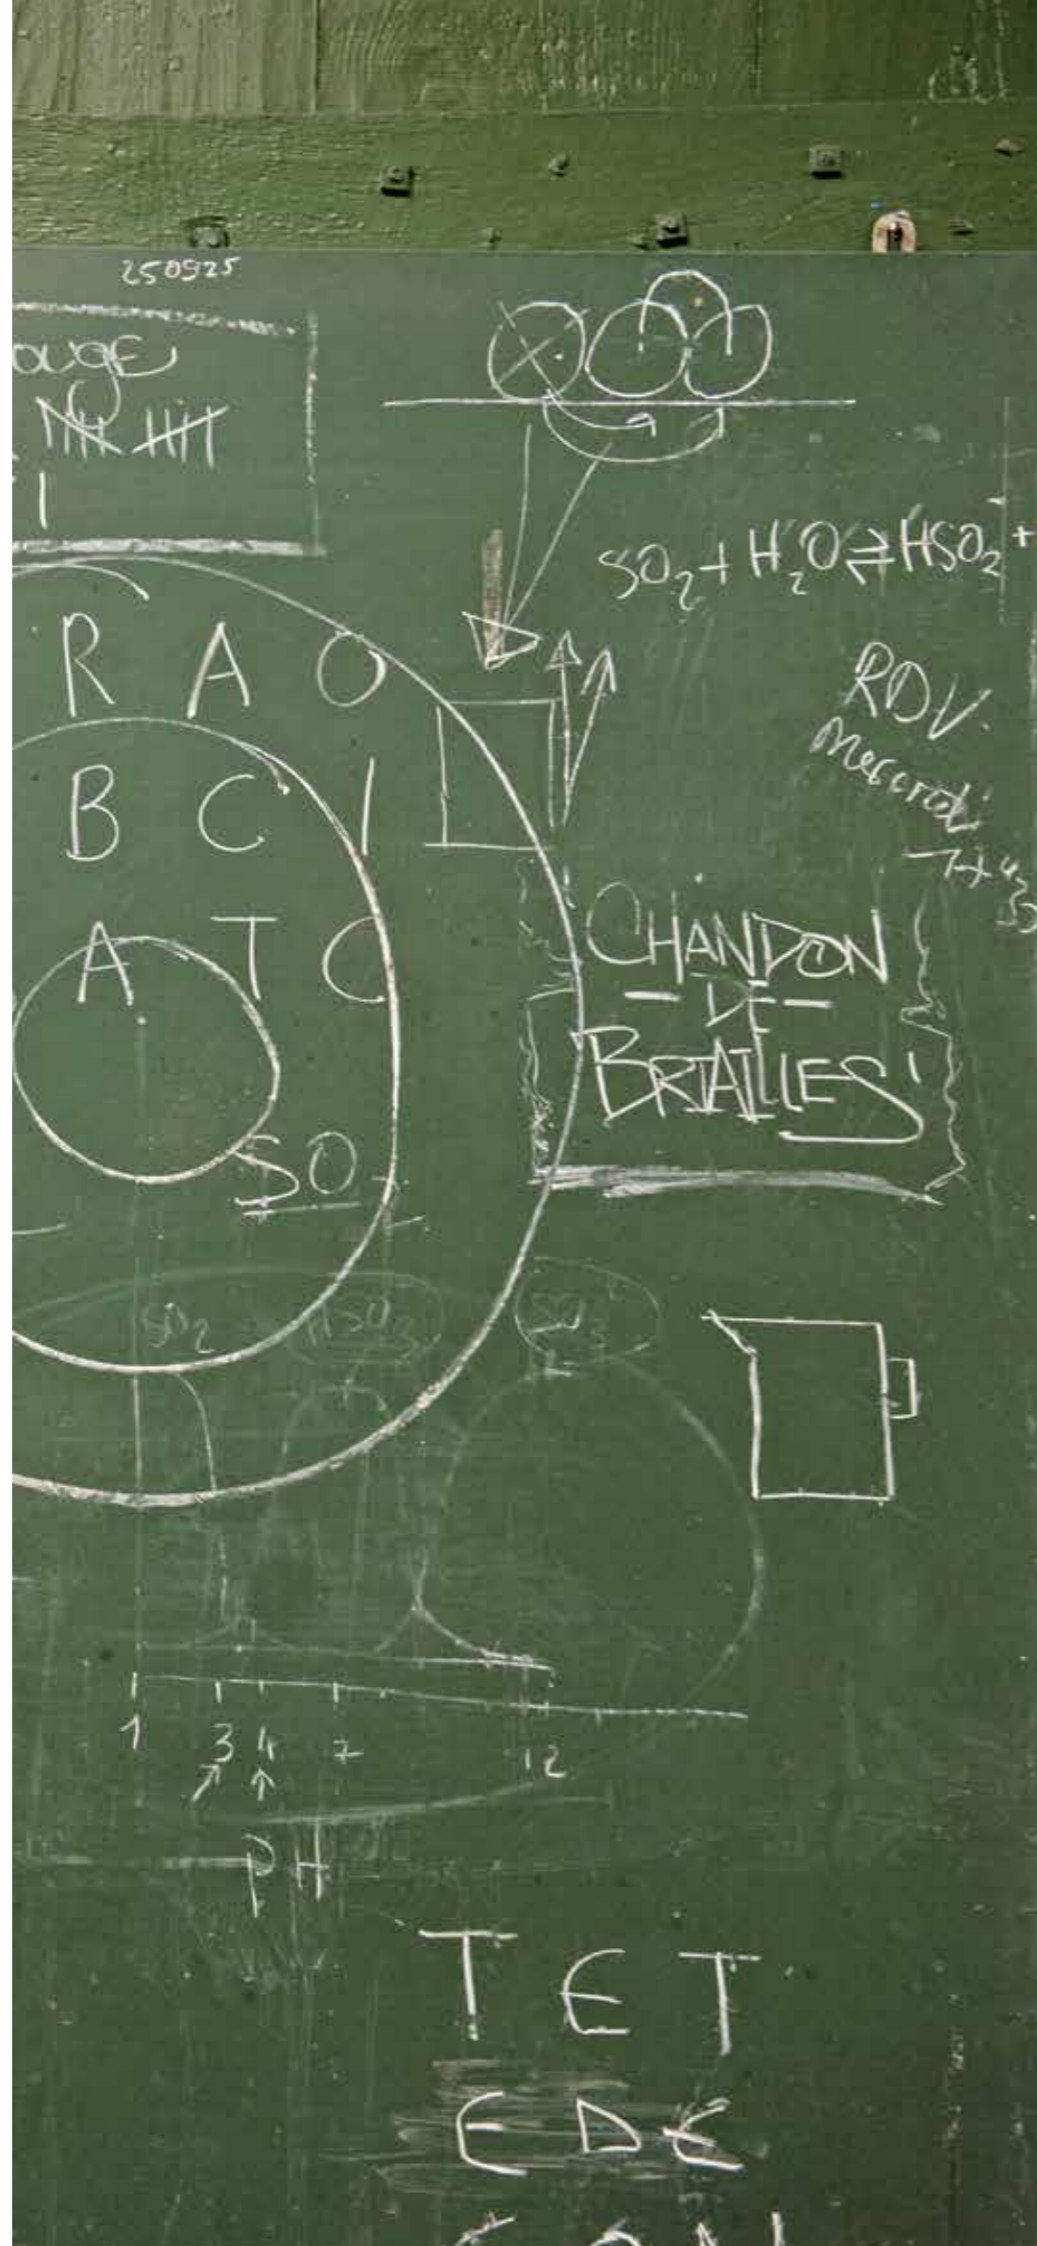 250925
ouge
SO₂ + H₂O ⇌ HSO₂ +
RDV
R A O
B C I
A T C
CHANDON
- DE -
BRIAILLES
SO
SO₂ HSO₃ SO₃
1 3 4 7 12
PH
T E T
E D E